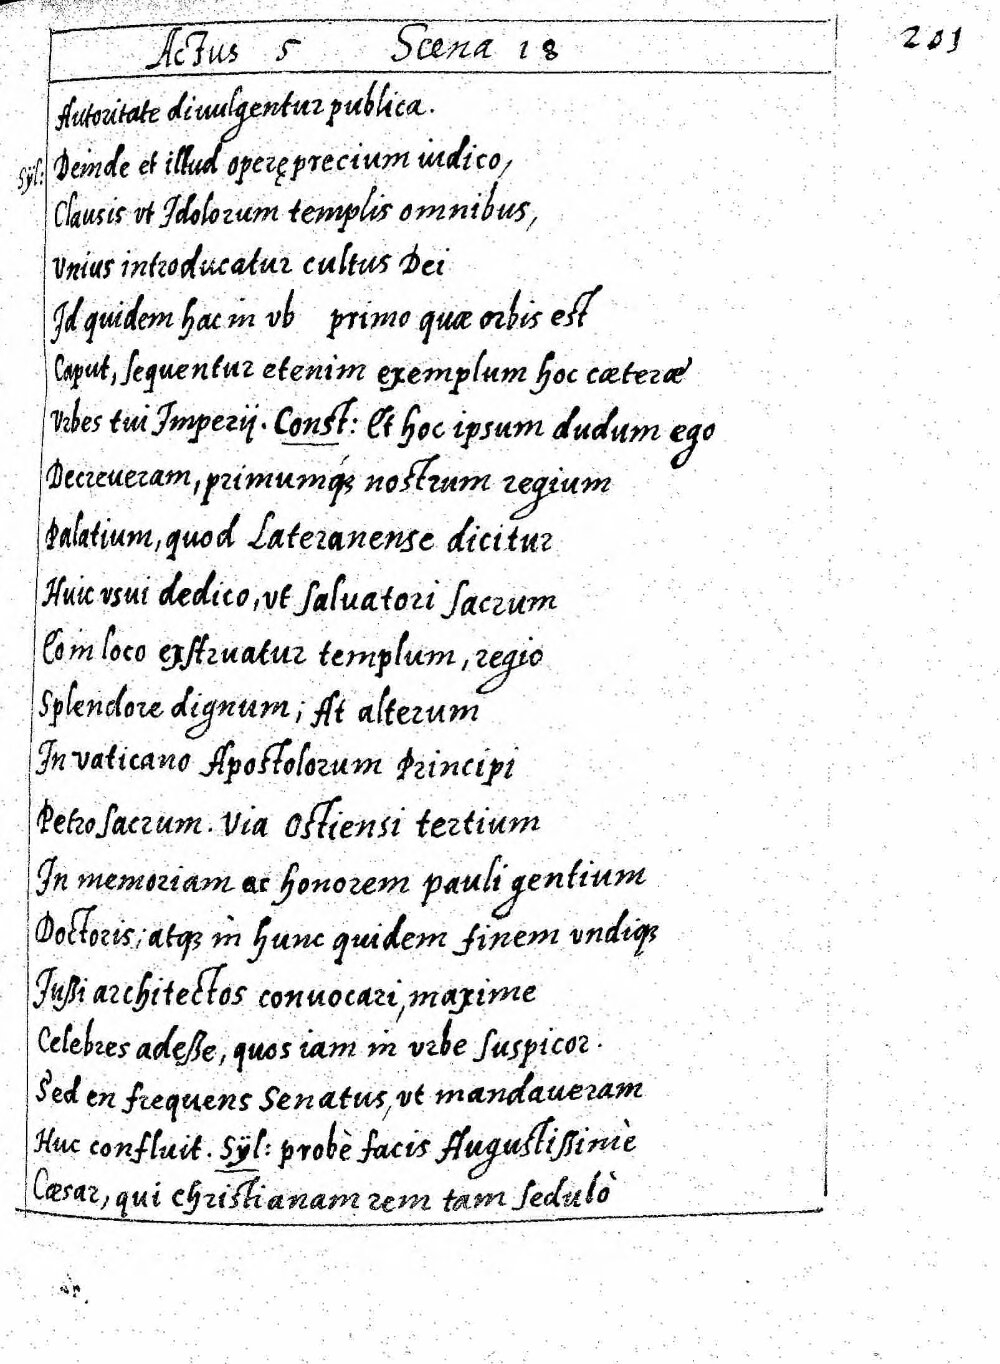 Actus 5 Scena 18 201
Autoritate divulgentur publica.
Sÿl: Deinde et illud operę precium iudico,
Clausis vt Idolorum templis omnibus,
Vnius introducatur cultus Dei
Id quidem hac in vb primo quæ orbis est
Caput, sequentur etenim exemplum hoc cæteræ
Vrbes tui Imperij. Const: Et hoc ipsum dudum ego
Decreveram, primumq́ꝫ nostrum regium
Palatium, quod Lateranense dicitur
Huic vsui dedico, vt Salvatori Sacrum
Eo in loco exstruatur templum, regio
Splendore dignum; At alterum
In vaticano Apostolorum Principi
Petro Sacrum. Via Ostiensi tertium
In memoriam ac honorem pauli gentium
Doctoris; atqꝫ in hunc quidem finem vndiqꝫ
Jußi architectos convocari, maxime
Celebres adeße, quos iam in vrbe suspicor.
Sed en frequens Senatus, vt mandaveram
Huc confluit. Sÿl: probè facis Augustißimè
Cæsar, qui christianam rem tam sedulò